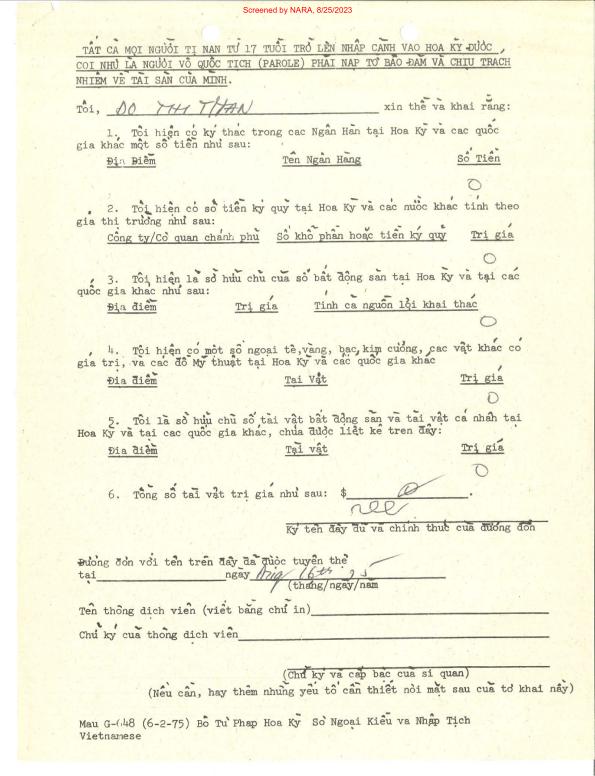 Screened by NARA, 8/25/2023
TẤT CẢ MỌI NGƯỜI TỊ NẠN TỪ 17 TUỔI TRỞ LÊN NHẬP CẢNH VÀO HOA KỲ ĐƯỢC
COI NHƯ LÀ NGƯỜI VÔ QUỐC TỊCH (PAROLE) PHẢI NẠP TỜ BẢO ĐẢM VÀ CHỊU TRÁCH
NHIỆM VỀ TÀI SẢN CỦA MÌNH.
Tôi, DO THI xin thề và khai rằng:
1. Tôi hiện có ký thác trong các Ngân Hàn tại Hoa Kỳ và các quốc
gia khác một số tiền như sau:
Địa Điểm Tên Ngân Hàng Số Tiền
0
2. Tôi hiện có số tiền ký quỹ tại Hoa Kỳ và các nước khác tính theo
giá thị trường như sau:
Công ty/Cơ quan chánh phủ Số khổ phần hoặc tiền ký quỹ Trị giá
0
3. Tôi hiện là sở hữu chủ của số bất động sản tại Hoa Kỳ và tại các
quốc gia khác như sau:
Địa điểm Trị giá Tính cả nguồn lợi khai thác
0
4. Tôi hiện có một số ngoại tệ,vàng, bạc,kim cương, các vật khác có
giá trị, và các đồ Mỹ thuật tại Hoa Kỳ và các quốc gia khác
Địa điểm Tài Vật Trị giá
0
5. Tôi là sở hữu chủ số tài vật bất động sản và tài vật cá nhân tại
Hoa Kỳ và tại các quốc gia khác, chưa được liệt kê trên đây:
Địa điểm Tài vật Trị giá
0
6. Tổng số tài vật trị giá như sau: $ 0.
Ký tên đầy đủ và chính thức của đương đơn
Đương đơn với tên trên đây đã được tuyên thệ
tại ngày Aug 16th 75
(tháng/ngày/năm
Tên thông dịch viên (viết bằng chữ in)
Chữ ký của thông dịch viên
(Chữ ký và cấp bậc của sĩ quan)
(Nếu cần, hãy thêm những yếu tố cần thiết nơi mặt sau của tờ khai nầy)
Mau G-648 (6-2-75) Bô Tư Phap Hoa Kỳ Sở Ngoại Kiều va Nhập Tịch
Vietnamese